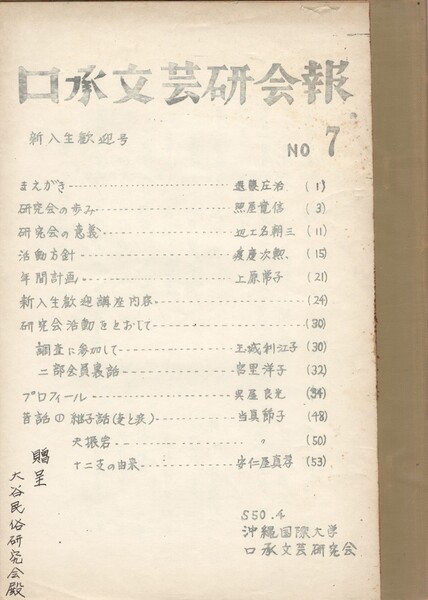 口承文芸研会報
新入生歓迎号
NO 7
まえがき 遠藤庄治 (1)
研究会の歩み 照屋寛信 (3)
研究会の意義 辺土名朝三 (11)
活動方針 渡慶次勲 (15)
年間計画 上原常子 (21)
新入生歓迎講座内容 (24)
研究会活動をとおして (30)
調査に参加して 玉城利江子 (30)
二部会員裏話 宮里洋子 (32)
プロフィール 呉屋良光 (34)
昔話の継子話(
当真節子 (48)
天振岩 〃 (50)
十二支の由来 安仁屋真淳 (53)
贈呈
大谷民俗研究会殿
S50.4
沖縄国際大学
口承文芸研究会